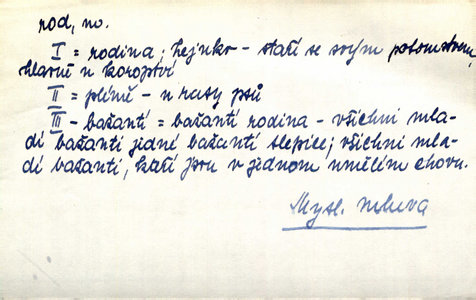 rod, no.
I = rodina; hejnko - staří se svým potomstvem,
hlavně u koroptví
II = plémě - u rasy psů
III - bažantí = bažantí rodina - všichni mla-
dí bažanti jedné bažantí slepice; všichni mla-
dí bažanti, kteří jsou v jednom umělém chovu.
Mysl. mluva